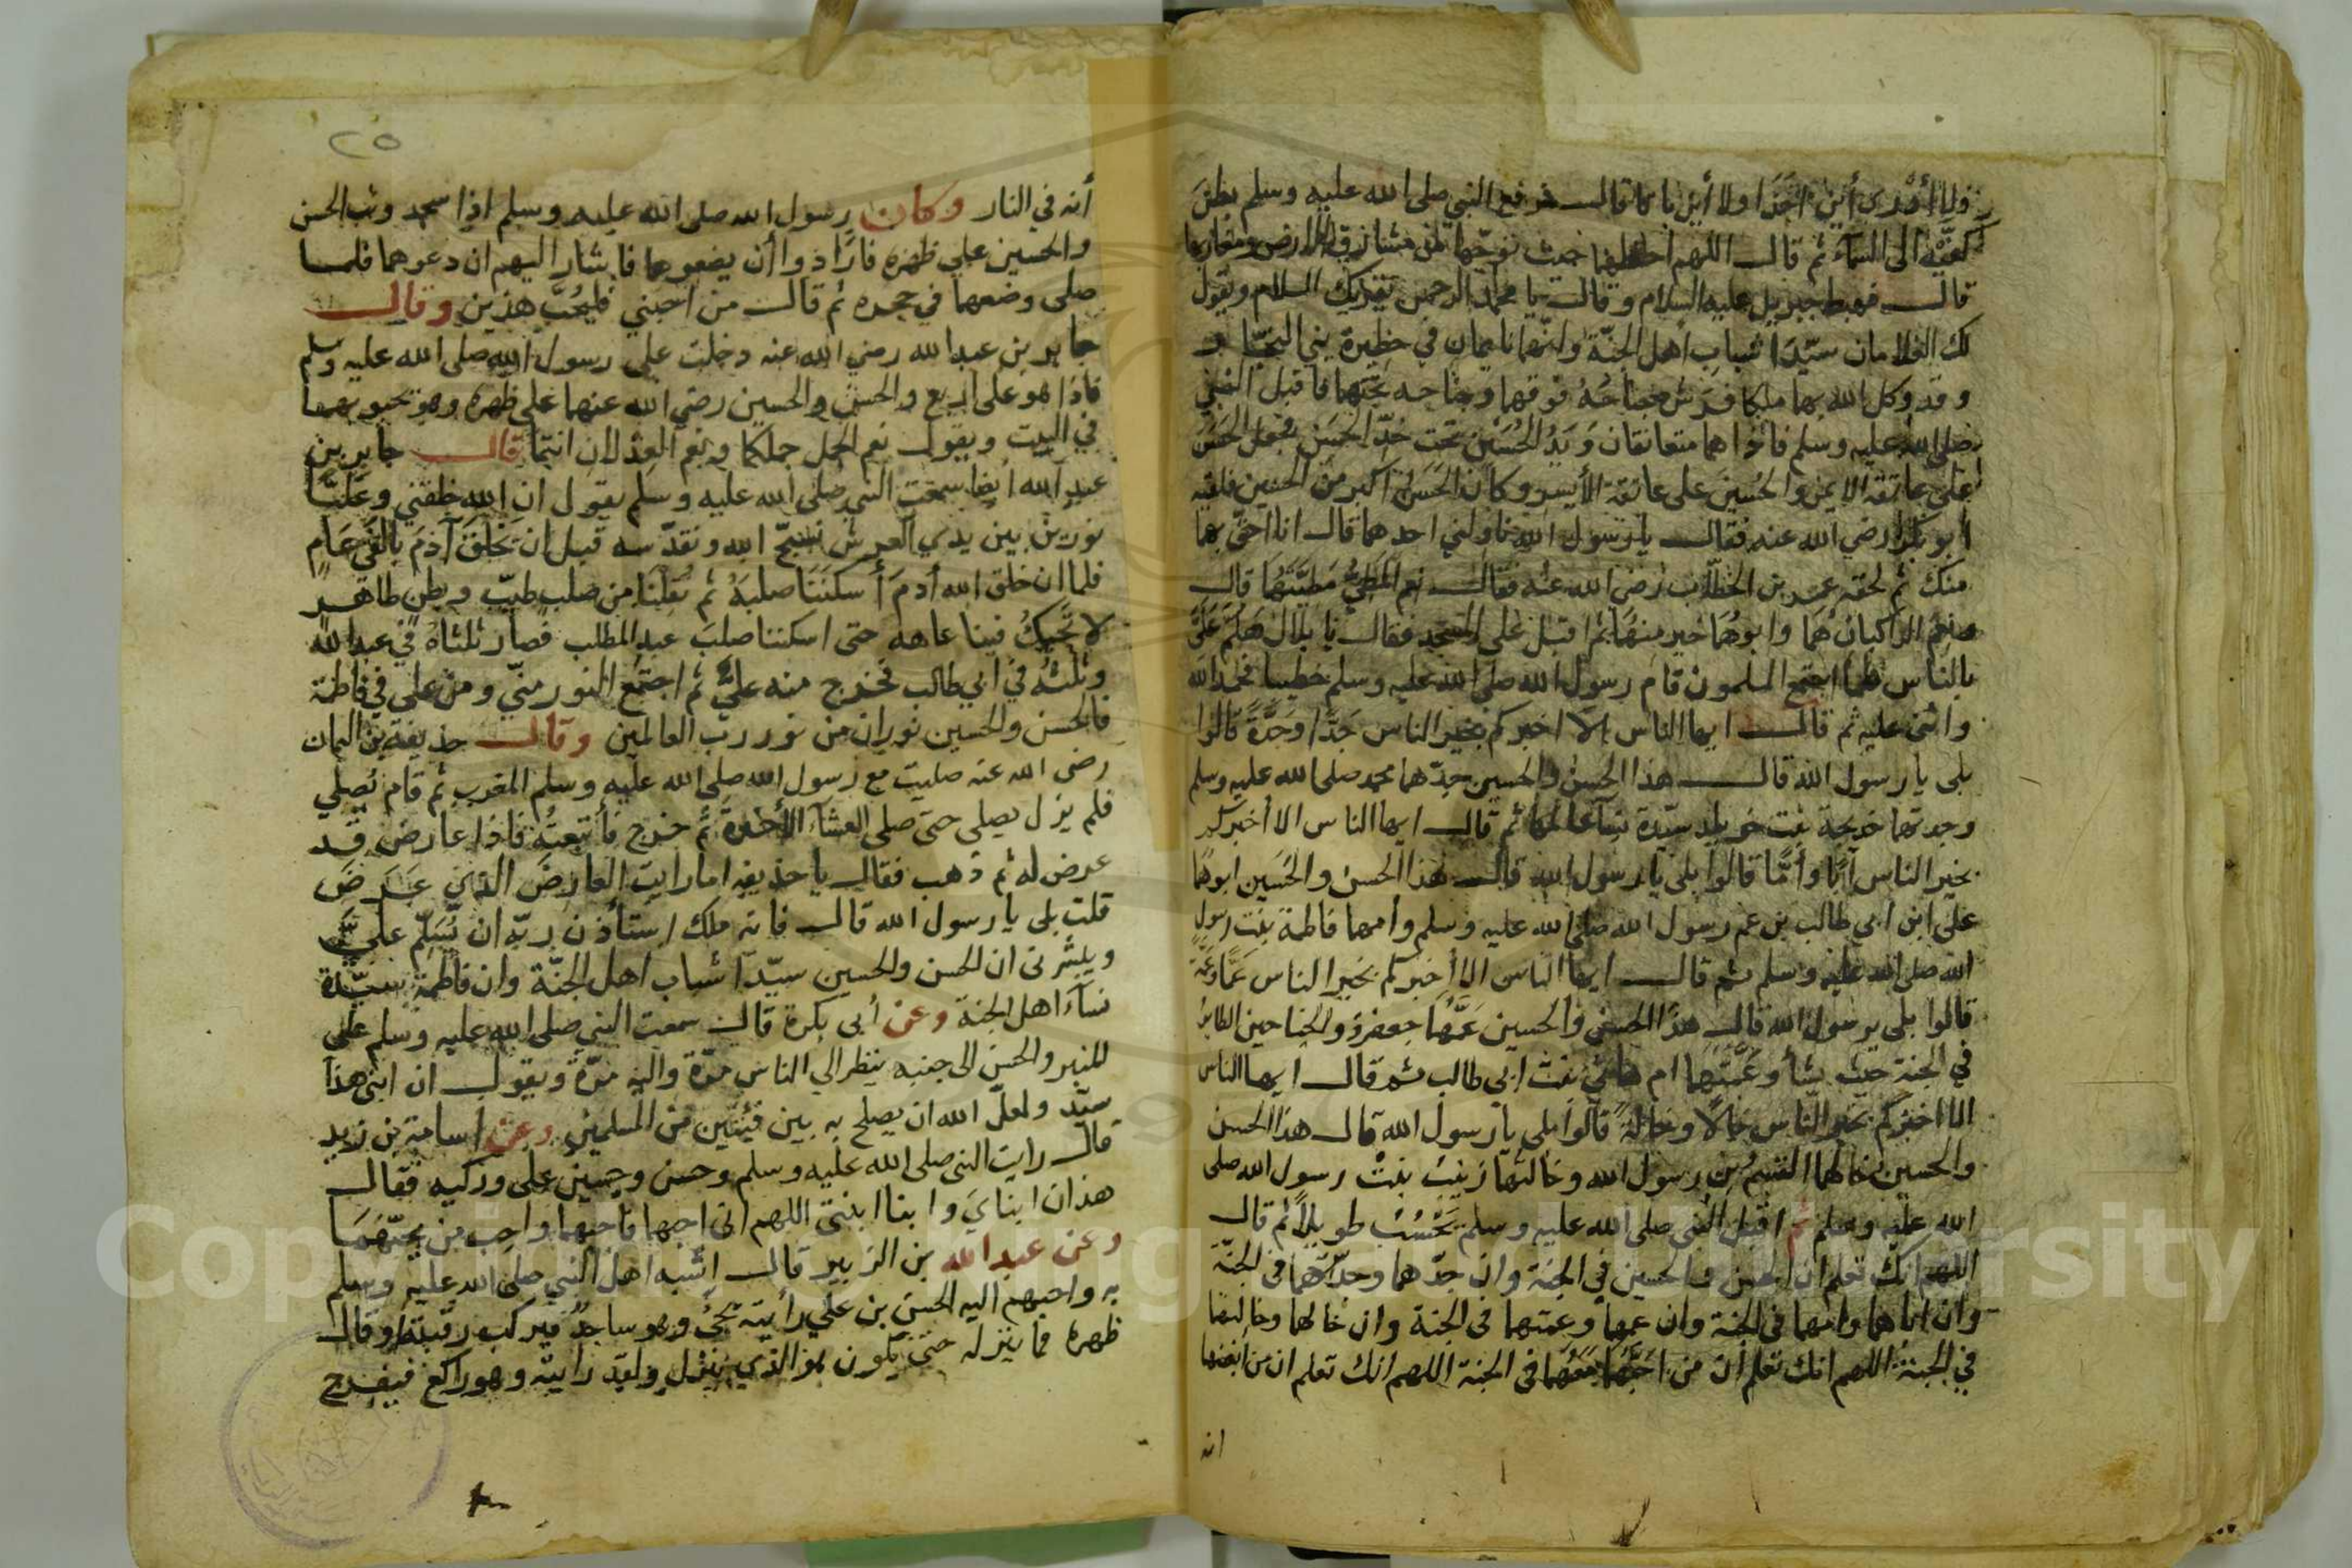 فلا أدري أين أخذا ولا أين باتا قال فرفع النبي صلى الله عليه وسلم بطن
كفيه الى السماء ثم قال اللهم احفظهما حيث توجها من مشارق الارض ومغاربها
قال فهبط جبريل عليه السلام وقال يا محمد الرحمن يقريك السلام ويقول
لك الغلامان سيدا شباب أهل الجنة وانهما نايمان في حظيرة بني النجار
وقد وكل الله بهما ملكا فرش جناحه فوقهما وجناحه تحتهما فاقبل النبي
صلى الله عليه وسلم فاذا هما متعانقان ويد الحسين تحت خد الحسن فجعل الحسن
على عاتقه الايمن والحسين على عاتقه الأيسر وكان الحسن اكبر من الحسين فلقيه
أبو بكر رضي الله عنه فقال يا رسول الله ناولني احدهما قال انا احق بهما
منك ثم لحقه عمر بن الخطاب رضي الله عنه فقال نعم المطي مطيتهما قال
ونعم الراكبان هما وابوهما خير منهما ثم اقبل على المسجد فقال يا بلال هلم علي
بالناس فلما اجتمع المسلمون قام رسول الله صلى الله عليه وسلم خطيبا فحمد الله
واثنى عليه ثم قال ايها الناس الا اخبركم بخير الناس جدا وجدة قالوا
بلى يا رسول الله قال هذا الحسن والحسين جدهما محمد صلى الله عليه وسلم
وجدتهما خديجة بنت خويلد سيدة نساء عالمها ثم قال ايها الناس الا أخبركم
بخير الناس أبا وأما قالوا بلى يا رسول الله قال هذا الحسن والحسين ابوهما
علي ابن ابي طالب بن عم رسول الله صلى الله عليه وسلم وأمهما فاطمة بنت رسول
الله صلى الله عليه وسلم ثم قال ايها الناس الا أخبركم بخير الناس عما وعمة
قالوا بلى يرسول الله قال هذا الحسن والحسين عمهما جعفر ذو الجناحين الطاير
في الجنة حيث يشأ وعمتهما ام هاني بنت ابي طالب ثم قال ايها الناس
الا اخبركم بخير الناس خالا وخالة قالوا بلى يا رسول الله قال هذا الحسن
والحسين خالهما القسم بن رسول الله وخالتهما زينب بنت رسول الله صلى
الله عليه وسلم ثم اقبل النبي صلى الله عليه وسلم طويلا ثم قال
اللهم انك تعلم ان الحسن والحسين في الجنة وان جدهما وجدتهما في الجنة
وان اباهما وامهما في الجنة وان عمهما وعمتهما في الجنة وان خالهما وخالتهما
في الجنة اللهم انك تعلم أن من احبهما معهما في الجنة اللهم انك تعلم ان من ابغضهما
انه
٢٥
أنه في النار وكان رسول الله صلى الله عليه وسلم اذا سجد وثب الحسن
والحسين على ظهره فارادوا أن يضعوهما فاشار اليهم ان دعوهما فلما
صلى وضعهما في حجره ثم قال من احبني فليحب هذين وقال
جابر بن عبد الله رضي الله عنه دخلت على رسول الله صلى الله عليه وسلم
فاذا هو على اربع والحسن والحسين رضي الله عنهما على ظهره وهو يحبو بهما
في البيت ويقول نعم الجمل جملكما ونعم العدلان انتما قال جابر بن
عبد الله أيضا سمعت النبي صلى الله عليه وسلم يقول ان الله خلقني وعليا
نورين بين يدي العرش نسبح الله ونقدسه قبل ان يخلق آدم بالفي عام
فلما ان خلق الله أدم أسكننا صلبه ثم نقلنا من صلب طيب وبطن طاهر
لا فينا عاهه حتى اسكننا صلب عبد المطلب فصار ثلثاه في عبد الله
وثلثه في ابي طالب فخرج منه علي ثم اجتمع النور مني ومن علي في فاطمة
فالحسن والحسين نوران من نور رب العالمين وقال حذيفة بن اليمان
رضى الله عنه صليت مع رسول الله صلى الله عليه وسلم المغرب ثم قام يصلي
فلم يزل يصلى حتى صلى العشاء الأخرة ثم خرج فأتبعته فاذا عارض قد
عرض له ثم ذهب فقال يا حذيفه اما رايت العارض الذي عرض
قلت بلى يا رسول الله قال فانه ملك استأذن ربه ان يسلم علي
ويبشرني ان الحسن والحسين سيدا شباب اهل الجنة وان فاطمة سيدة
نساء اهل الجنة وعن أبي بكرة قال سمعت النبي صلى الله عليه وسلم على
المنبر والحسن الى جنبه ينظر الي الناس مرة واليه مرة ويقول ان ابني هذا
سيد ولعل الله ان يصلح به بين فئتين من المسلمين وعن اسامة بن زيد
قال رايت النبي صلى الله عليه وسلم وحسن وحسين على وركيه فقال
هذان ابناي وابنا ابنتي اللهم اني احبهما فاحبهما واحب من يحبهما
وعن عبد الله بن الزبير قال اشبه اهل النبي صلى الله عليه وسلم
به واحبهم اليه الحسن بن علي رأيته يجئ وهو ساجد فيركب رقبته او قال
ظهره فما ينزله حتى يكون هو الذي ينزل ولقد رايته وهو راكع فيفرج
Copyright © King Saud University